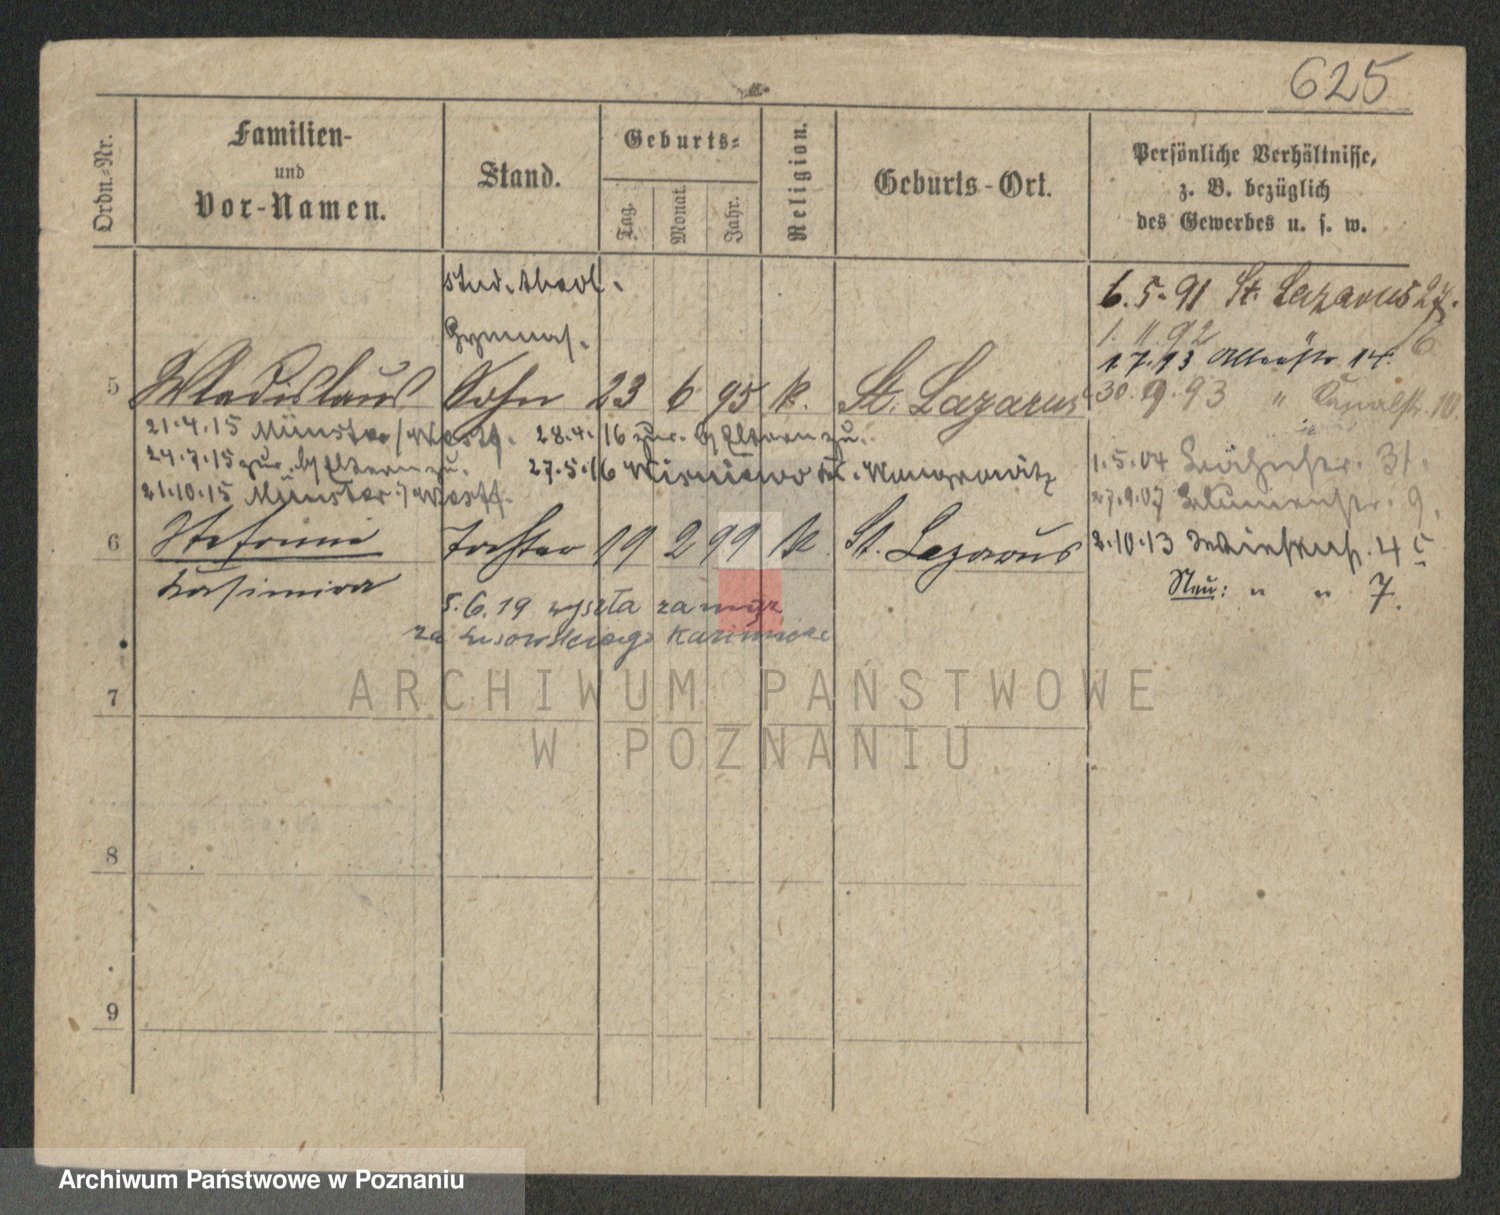 625
Ordn.-Nr.
Familien-
und
Vor-Namen.
Stand.
Geburts-
Tag.
Monat.
Jahr.
Religion.
Geburts-Ort.
Persönliche Verhältnisse,
z. B. bezüglich
des Gewerbes u. s. w.
stud. theol.
Gymnas.
5 Wladislaus Sohn 23 6 95 k. St. Lazarus
21.4.15 Münster/Westf. 28.4.16 zur. b/ Eltern zu.
24.7.15 zur. b/ Eltern zu. 27.5.16 Kr. Wongrowitz
21.10.15 Münster i/Westf.
6 Stefanie Tochter 19 2 99 k St. Lazarus
Kasimira
5.6.19 wyszła za mąż
za Lisowskiego Kazimierza
7
8
9
6.5.91 St. Lazarus 27.
1. " 92 " 6
1.7.93 14.
30.9.93 " Kanalstr. 10.
1.5.04 31.
27.9.07 Blumenstr. 9.
2.10.13 45
Neu: " " 7.
ARCHIWUM PAŃSTWOWE
W POZNANIU
Archiwum Państwowe w Poznaniu